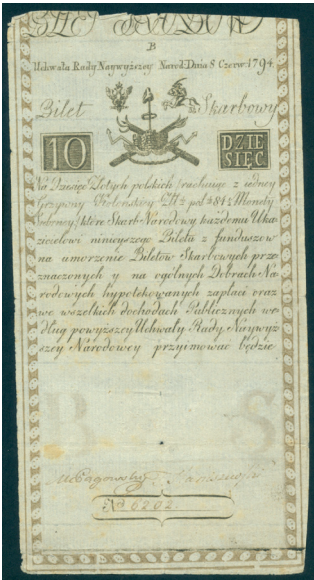 B
Uchwała Rady Naywyższey Narod: Dnia 8 Czerw: 1794
Bilet Skarbowy
10 DZIE
SIĘĆ
Na Dziesięć Złotych polskich rachuiąc z iedney
Grzywny Kolońskiey Monety
Srebrney ktore Skarb Narodowy każdemu Oka-
zicielowi ninieyszego Biletu z funduszow
na umorzenie Biletow Skarbowych prze-
znaczonych y na ogólnych Dobrach Na-
rodowych hypotekowanych zapłaci oraz
we wszelkich dochodach Publicznych we-
dług powyższey Uchwały Rady Naywyż-
szey Narodowey przyimować będzie
B S
No 6202